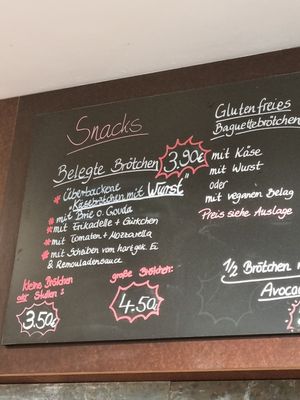 Snacks
Belegte Brötchen 3.90€
* Überbackene
Käsebrötchen mit "Wurst"
* mit Brie o. Gouda
* mit Frikadelle + Gürkchen
* mit Tomaten + Mozzarella
* mit Scheiben vom hartgek. Ei
& Remouladensauce
kleine Brötchen
oder Stullen:
3.50€
große Brötchen:
4.50€
Glutenfreies
Baguettebrötchen
mit Käse
mit Wurst
oder
mit veganen Belag
Preis siehe Auslage
1/2 Brötchen